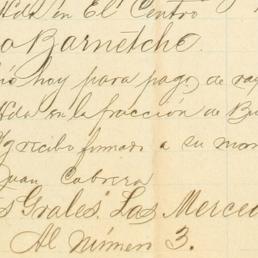 en El Centro
o Barnetche.
hoy para pago de ra
en la fracción de Bu
recibo firmado a su mon
Juan Cabrera
s Grales. Las Merced
Al número 3.